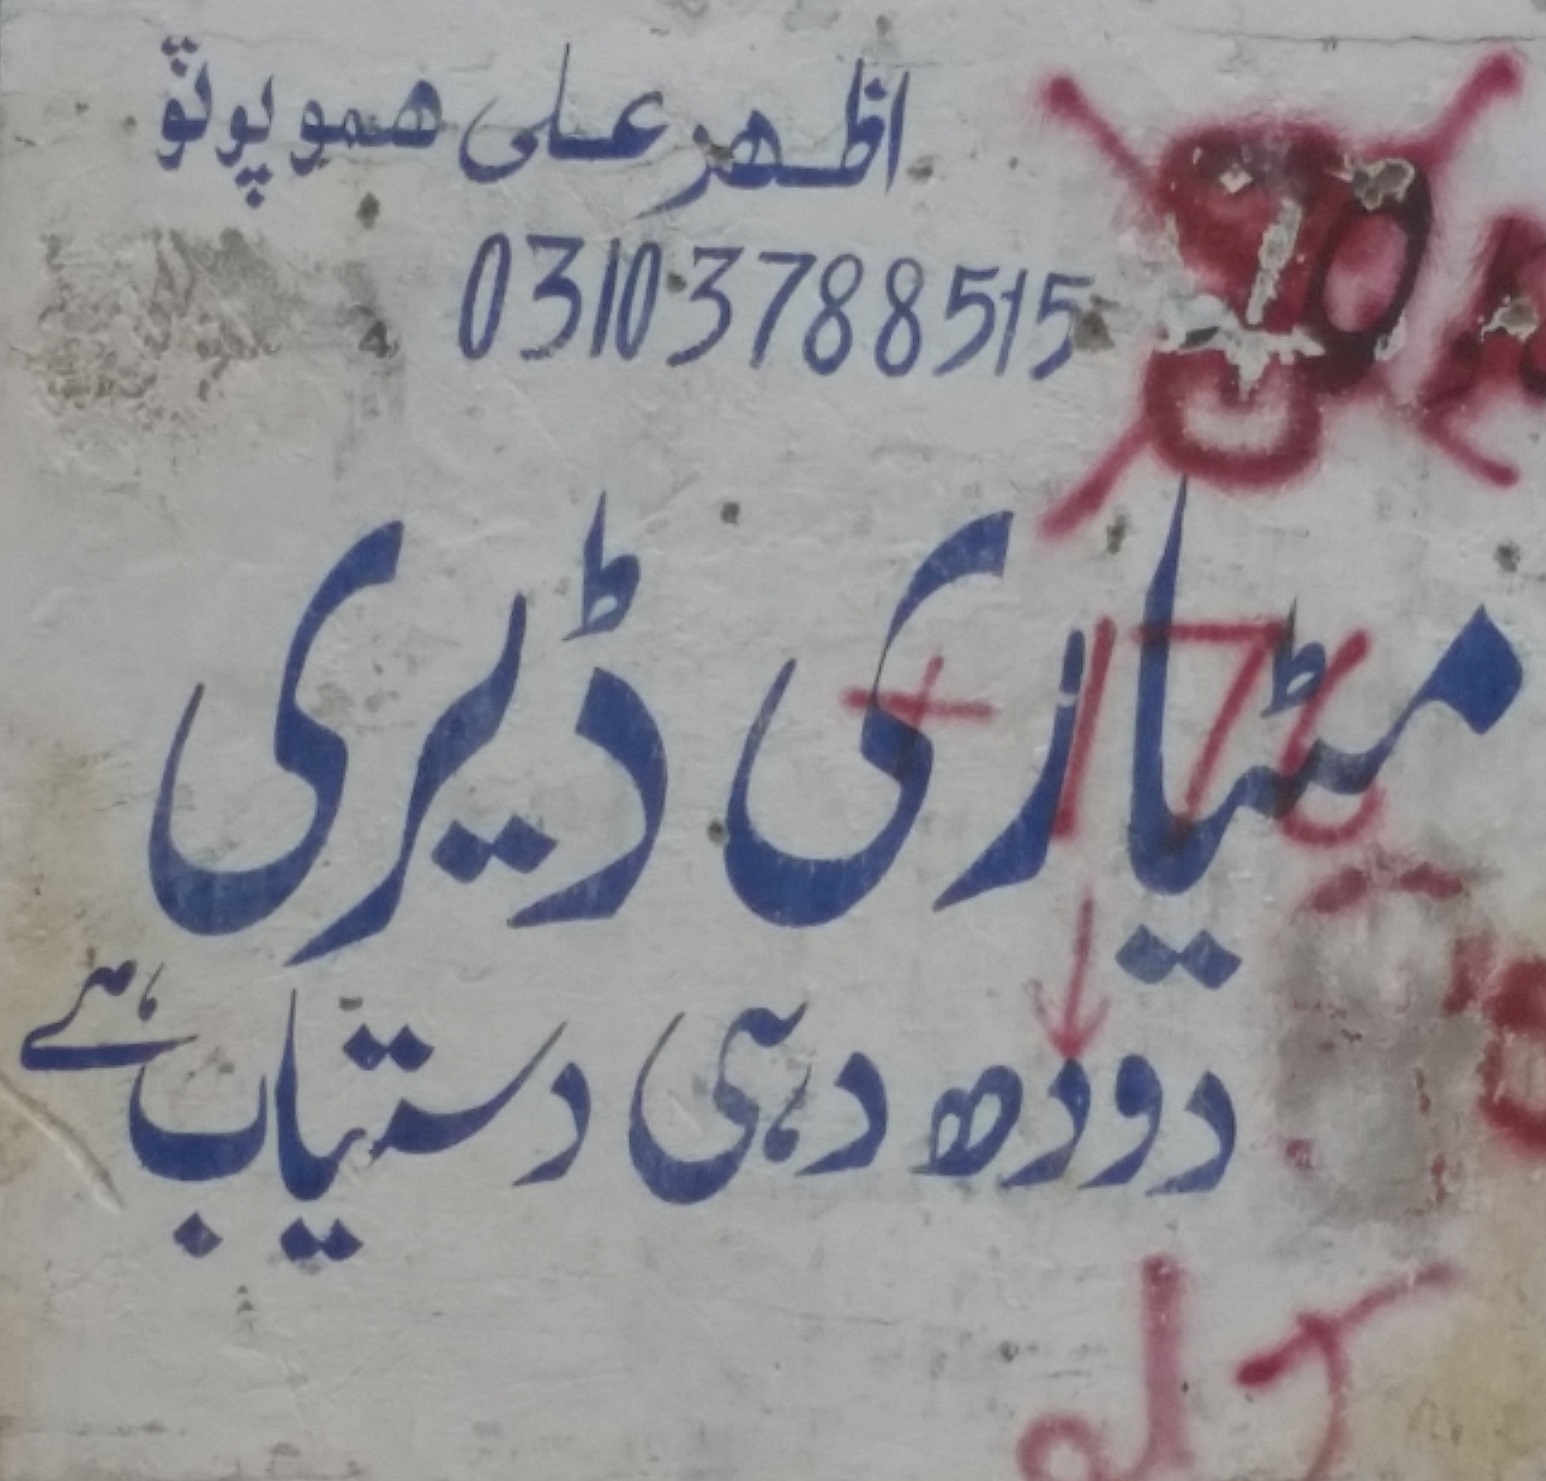 اظهر علی همو پوٽو
03103788515
مٹیاری ڈیری
دودھ دہی دستیاب ہے